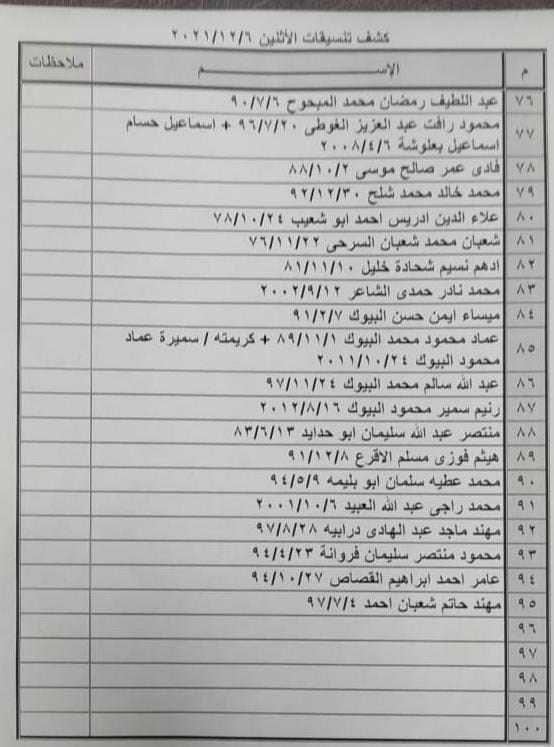 كشف تنسيقات الأثنين ٢٠٢١/١٢/٦
م الإســــــــم ملاحظات
٧٦ عبد اللطيف رمضان محمد المبحوح ٩٠/٧/٦
٧٧ محمود رافت عبد العزيز الغوطى ٩٦/٧/٢٠ + اسماعيل حسام
اسماعيل بعلوشة ٢٠٠٨/٤/٦
٧٨ فادى عمر صالح موسى ٨٨/١٠/٢
٧٩ محمد خالد محمد شلح ٩٢/١٢/٣٠
٨٠ علاء الدين ادريس احمد ابو شعيب ٧٨/١٠/٢٤
٨١ شعبان محمد شعبان السرحى ٧٦/١١/٢٢
٨٢ ادهم نسيم شحادة خليل ٨١/١١/١٠
٨٣ محمد نادر حمدى الشاعر ٢٠٠٢/٩/١٢
٨٤ ميساء ايمن حسن البيوك ٩١/٢/٧
٨٥ عماد محمود محمد البيوك ٨٩/١١/١ + كريمته / سميرة عماد
محمود البيوك ٢٠١١/١٠/٢٤
٨٦ عبد الله سالم محمد البيوك ٩٧/١١/٢٤
٨٧ رنيم سمير محمود البيوك ٢٠١٢/٨/١٦
٨٨ منتصر عبد الله سليمان ابو حدايد ٨٣/٦/١٣
٨٩ هيثم فوزى مسلم الاقرع ٩١/١٢/٨
٩٠ محمد عطيه سلمان ابو بليمه ٩٤/٥/٩
٩١ محمد راجى عبد الله العبيد ٢٠٠١/١٠/٦
٩٢ مهند ماجد عبد الهادى درابيه ٩٧/٨/٢٨
٩٣ محمود منتصر سليمان فروانة ٩٤/٤/٢٣
٩٤ عامر احمد ابراهيم القصاص ٩٤/١٠/٢٧
٩٥ مهند حاتم شعبان احمد ٩٧/٧/٤
٩٦
٩٧
٩٨
٩٩
١٠٠